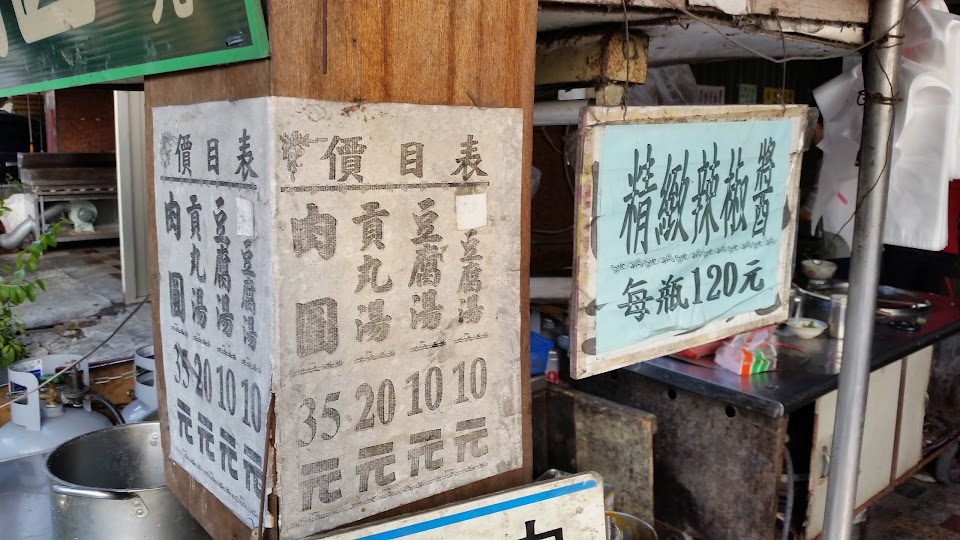 價目表
肉圓35元
貢丸湯20元
豆腐湯10元
豆腐湯10元
價目表
肉圓35元
貢丸湯20元
豆腐湯10元
豆腐湯10元
精緻辣椒醬
每瓶120元